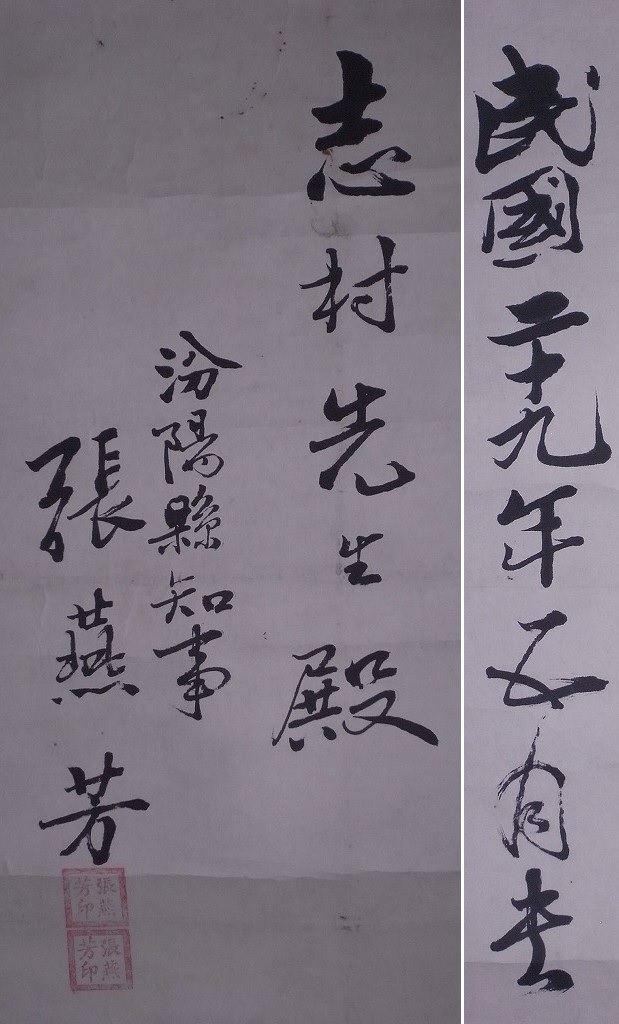 民國二十九年五月書
志村先生殿
汾陽縣知事
張燕芳
張燕
芳印
張燕
芳印